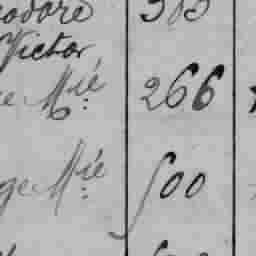 eodore 305
Victor
e Mié 266
ge Mié 500